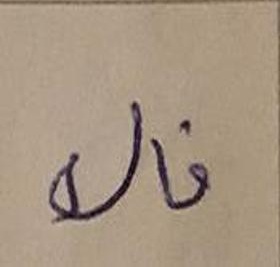 فاله